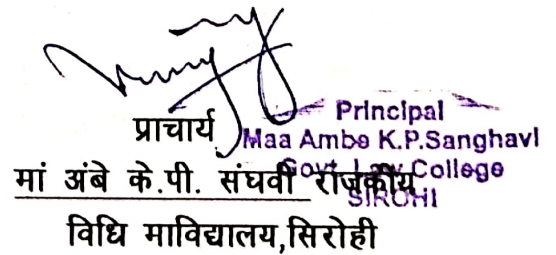 प्राचार्य
मां अंबे के.पी. संघवी राजकीय
विधि माविद्यालय,सिरोही
Principal
Maa Ambe K.P.Sanghavi
Govt. Law College
SIROHI